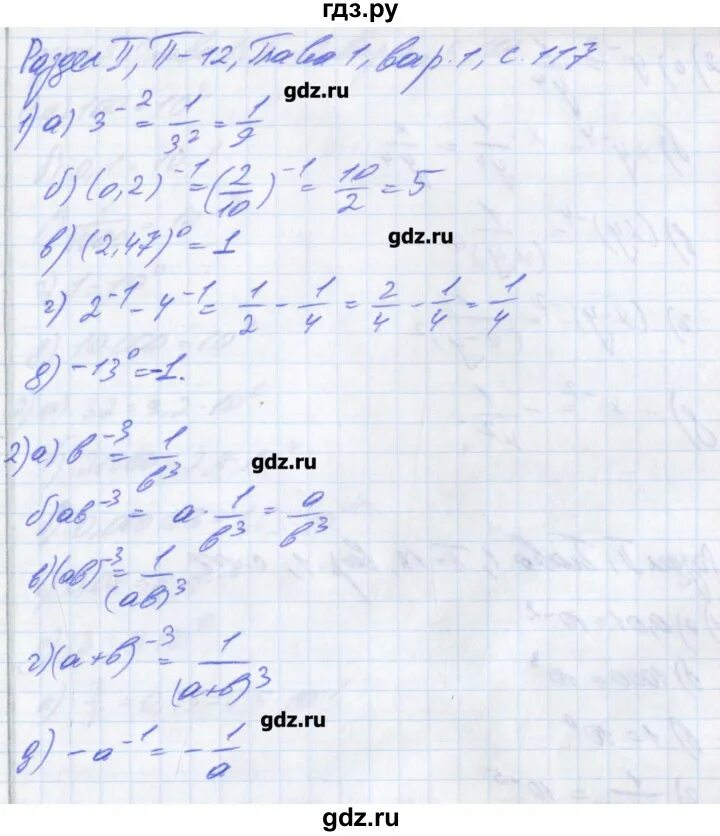 гдз.ру
Раздел II, П-12, Глава 1, вар. 1, с. 117
gdz.ru
1) а) 3⁻² = 1/3² = 1/9
б) (0,2)⁻¹ = (2/10)⁻¹ = 10/2 = 5
gdz.ru
в) (2,47)⁰ = 1
г) 2⁻¹ - 4⁻¹ = 1/2 - 1/4 = 2/4 - 1/4 = 1/4
д) -13⁰ = -1.
2) а) в⁻³ = 1/в³
gdz.ru
б) ав⁻³ = а · 1/в³ = а/в³
в) (ав)⁻³ = 1/(ав)³
г) (а+в)⁻³ = 1/(а+в)³
gdz.ru
д) -а⁻¹ = -1/а
gdz.ru